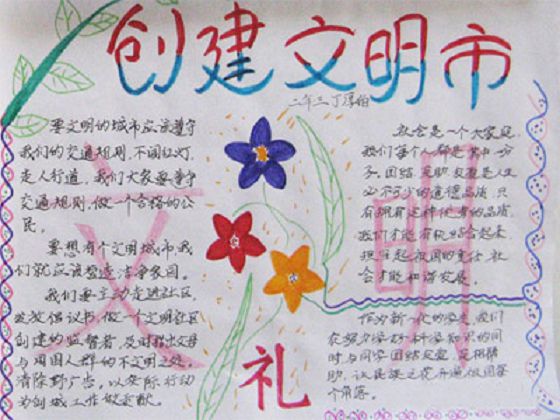 创建文明市
二年三 丁厚怡
要文明的城市应该遵守
我们的交通规则,不闯红灯,
走人行道,我们大家要争守
交通规则,做一个合格的公
民。
要想有个文明城市,我
们就应该营造洁净家园。
我们要主动走进社区,
发放倡议书,做一个文明社区
创建的监督者,及时指出父母
与周围人群的不文明之处,
清除野广告,以实际行动
为创城工作做贡献。
社会是一个大家庭
我们每个人都是其中一分
子,团结、互助、友爱是人生
必不可少的道德品质,只
有拥有这种优秀的品质,
我们才能有机结合起来,
担负起祖国的责任,社
会才能和谐发展。
作为新一代的学生,我们
在努力学好科学知识的同
时与同学团结友爱,互相帮
助,让民族之花开遍祖国每
个角落。
文
明
礼